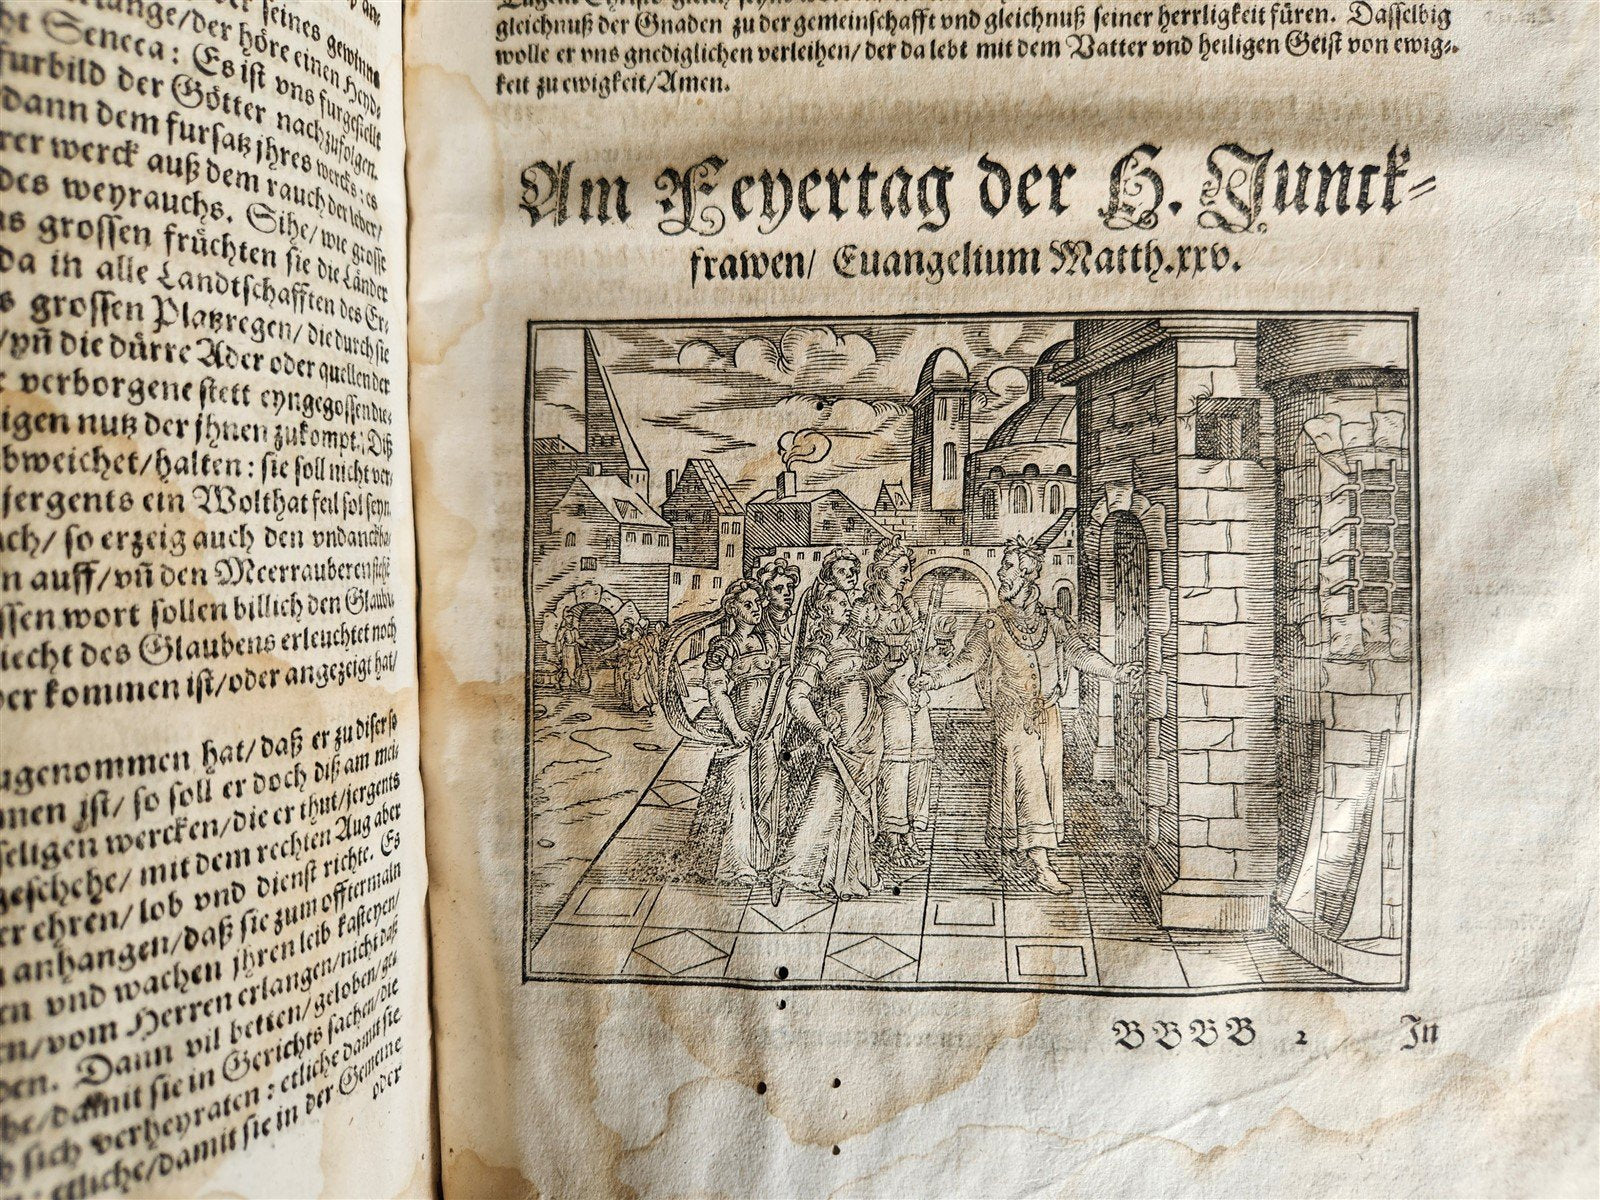 seines gewinns
der höre einen Heyd-
Seneca: Es ist vns furgestellt
furbild der Götter nachzufolgen.
dann dem fursatz jhres wercks: es
werck auß dem rauch der leber/
des weyrauchs. Sihe/ wie grosse
grossen früchten sie die Länder
da in alle Landtschafften des Er-
grossen Platzregen/ die durch sie
/vn̄ die dürre Ader oder quellen der
verborgene stett eyngegossen die-
nutz der jhnen zukompt: Diß
abweichet/halten: sie soll nicht ver-
jergents ein Wolthat feil sol seyn.
so erzeig auch den vndanckba-
auff/vn̄ den Meerrauberen stehet
wort sollen billich den Glaubi-
liecht des Glaubens erleuchtet noch
kommen ist/oder angezeigt hat/
hat/ daß er zu diser so
jst/ so soll er doch diß am mei-
seligen wercken/die er thut/jergents
geschehe/ mit dem rechten Aug aber
ehren/ lob vnd dienst richte. Es
anhangen/daß sie zum offtermaln
vnd wachen jhren leib kasteyen/
vom Herren erlangen/nicht daß
Dann vil betten/geloben/ge-
damit sie in Gerichts sachen/die
sich verheyraten: etliche damit sie
etliche/damit sie in der Gemeine
oder
gleichnuß der Gnaden zu der gemeinschafft vnd gleichnuß seiner herrligkeit füren. Dasselbig
wolle er vns gnediglichen verleihen/ der da lebt mit dem Vatter vnd heiligen Geist von ewig-
keit zu ewigkeit/Amen.
Am Feyertag der H. Junck-
frawen/ Euangelium Matth.xxv.
BBBB 2 In